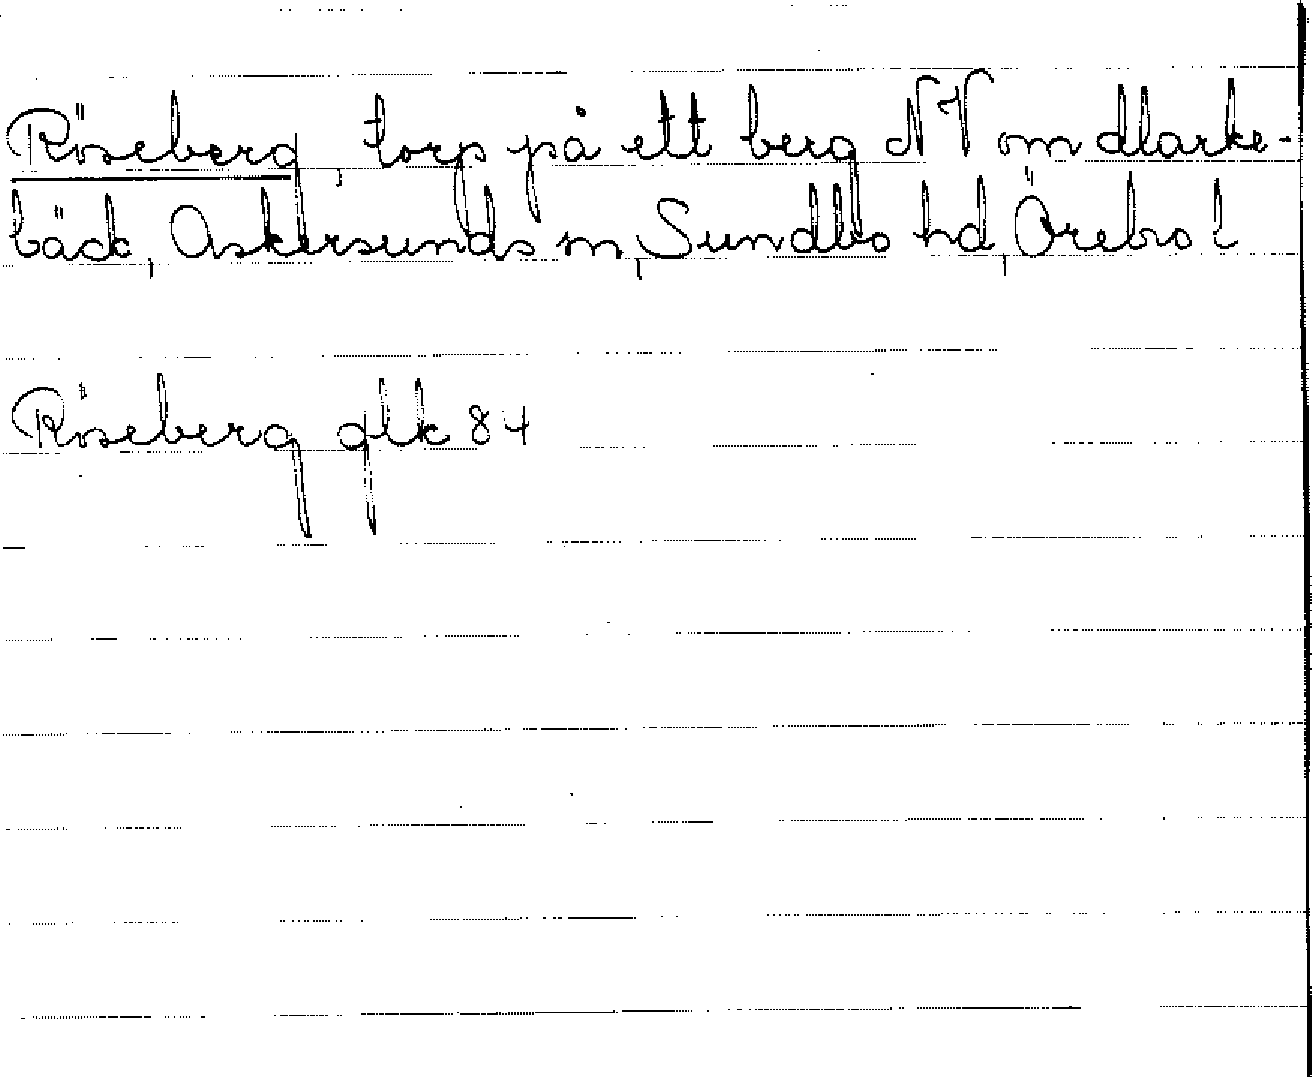 Röseberg, torp på ett berg NV om Harke-
bäck, Askersunds sn, Sundbo hd, Örebro l
Röseberg glk 84